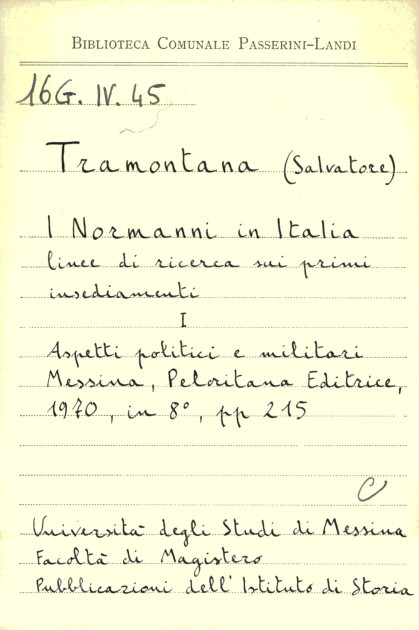 BIBLIOTECA COMUNALE PASSERINI-LANDI
16G. IV. 45
Tramontana (Salvatore)
I Normanni in Italia
linee di ricerca sui primi
insediamenti
I
Aspetti politici e militari
Messina, Peloritana Editrice,
1970, in 8°, pp 215
C
Università degli Studi di Messina
Facoltà di Magistero
Pubblicazioni dell'Istituto di Storia